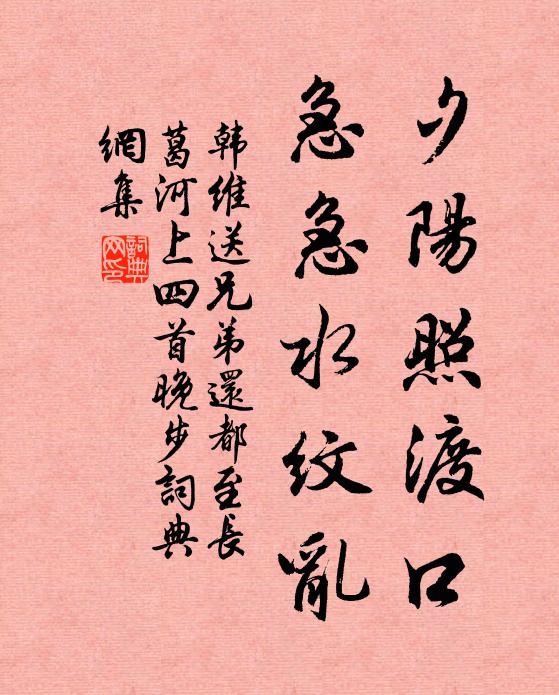 夕陽照渡口
急急水紋亂
韩維送兄弟還都至長
葛河上四首晚步詞典
網集
詞典
网印